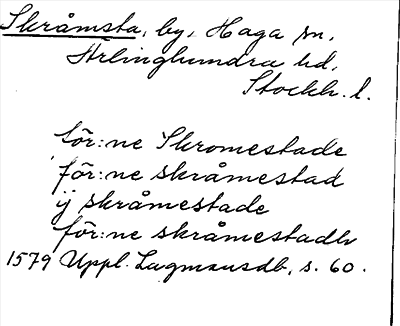 Skråmsta, by, Haga sn,
Ärlinghundra hd,
Stockh. l.
för:ne Skromestade
för:ne skråmestad
ij skråmestade
för:ne skråmestadh
1579 Uppl. Lagmansdb, s. 60.